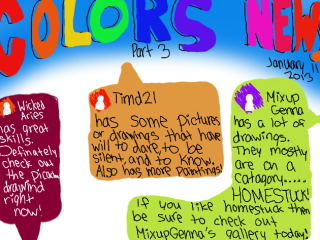 COLORS NEWS
Part 3
January 11
2013
Wicked
Aries
has great
skills.
Definately
check out
the picache
drawind
right
now!
Timd21
has some pictures
or drawings that have
will to dare, to be
silent, and to know.
Also has more paintings!
Mixup
Genna
has a lot of
drawings.
They mostly
are on a
catagory.....
HOMESTUCK!
If you like homestuck then
be sure to check out
MixupGenna's gallery today!